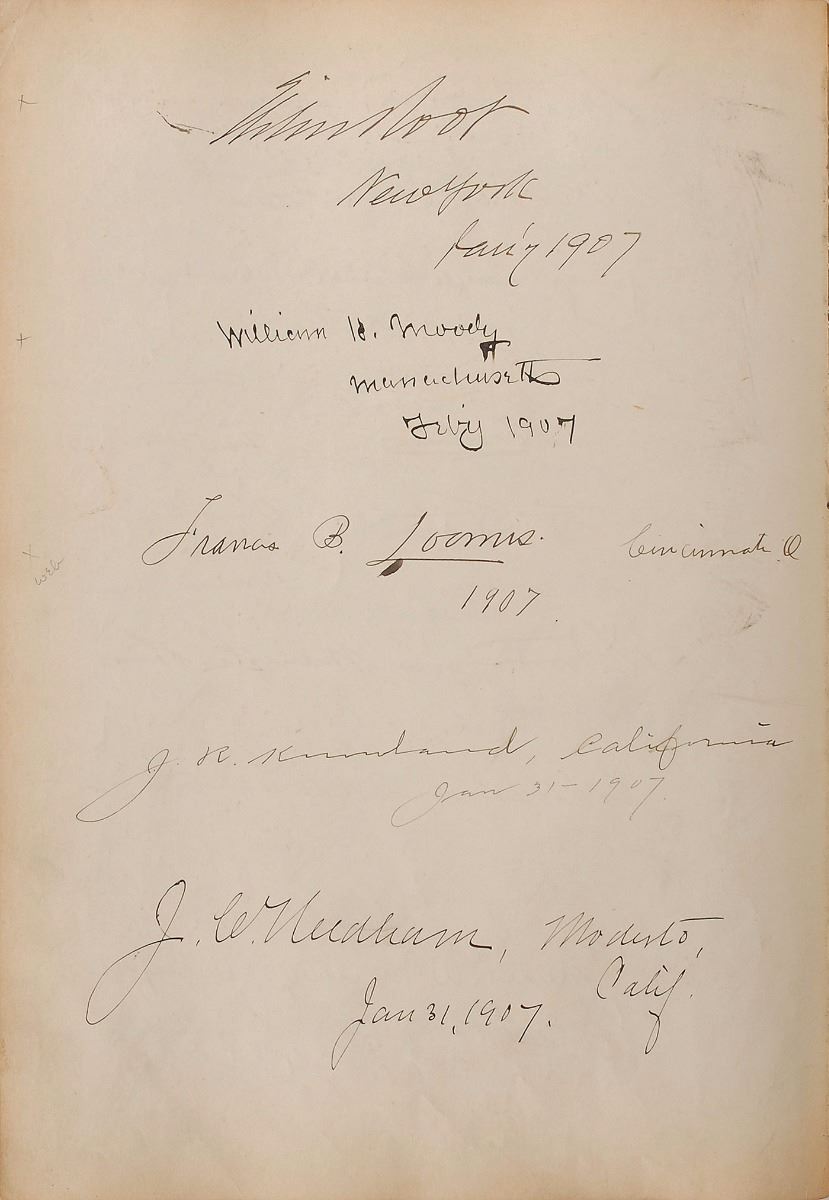 Elihu Root
New York
Jan'y 1907
William H. Moody
Massachusetts
Feb'y 1907
Francis B. Loomis. Cincinnati O
1907
J. R. Knowland, California
Jan 31 - 1907.
web
J. C. Needham, Modesto,
Calif.
Jan 31, 1907.